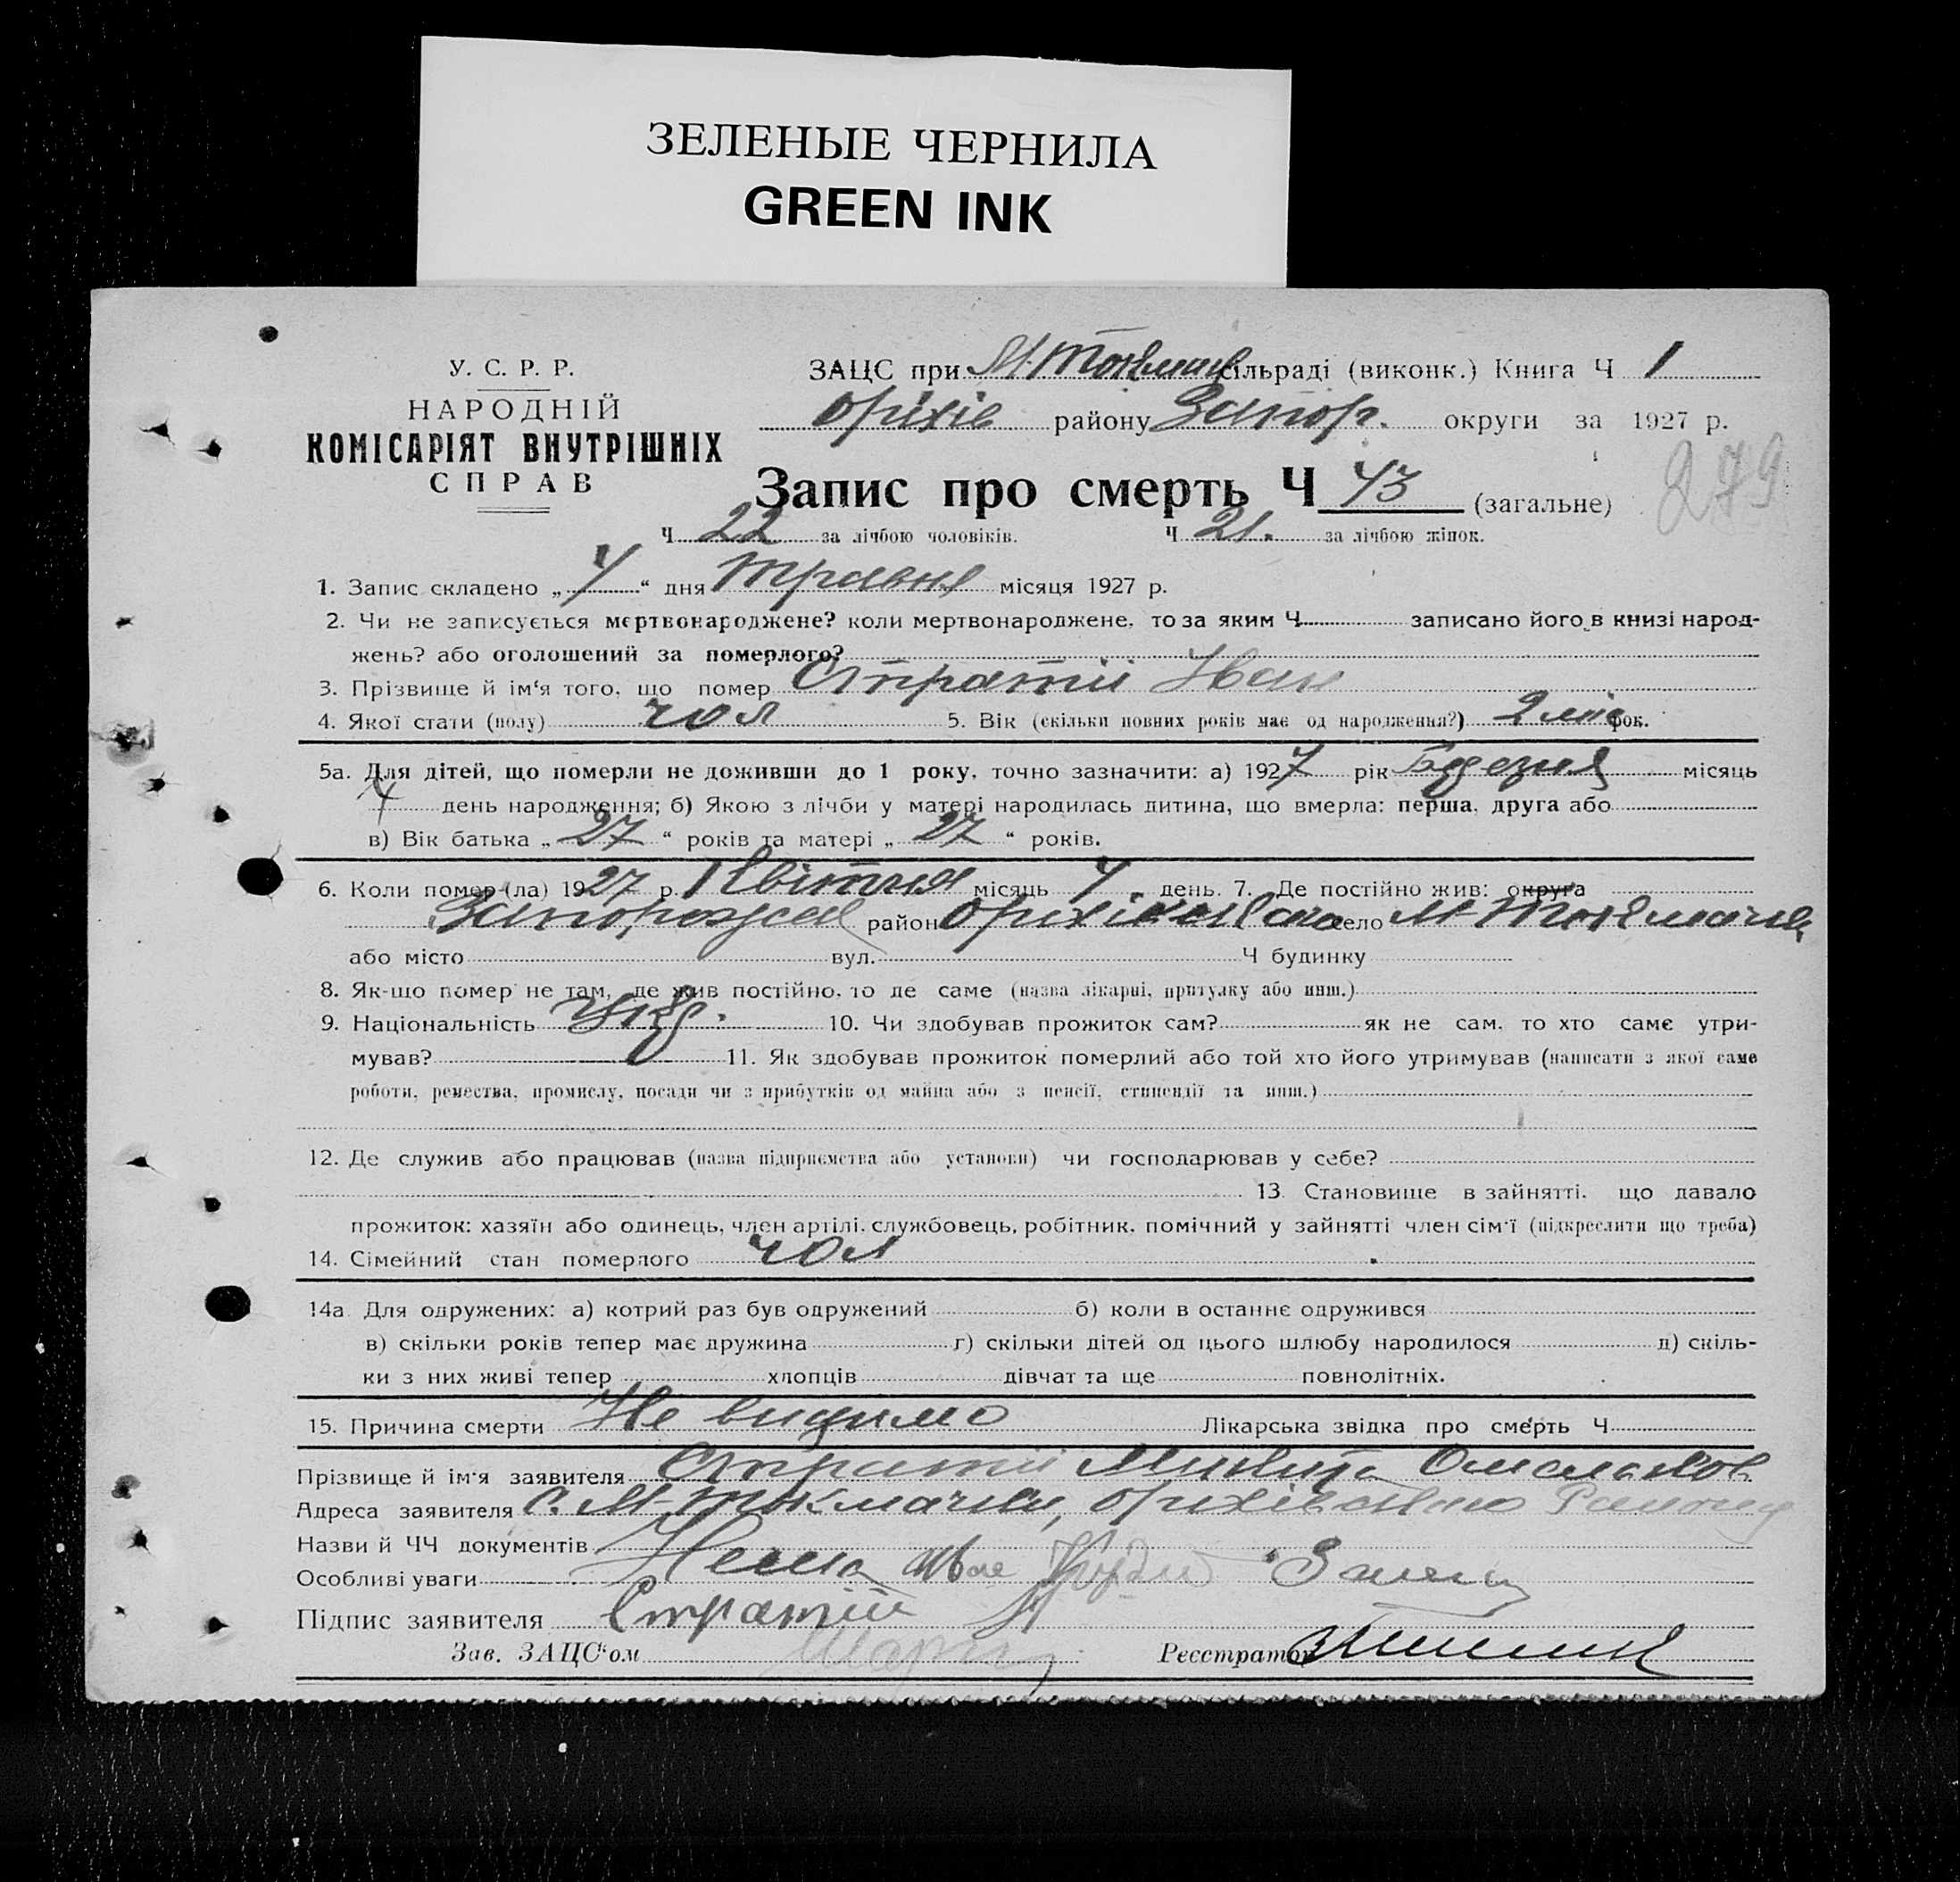 ЗЕЛЕНЫЕ ЧЕРНИЛА
GREEN INK
У. С. Р. Р.
НАРОДНІЙ
КОМІСАРІЯТ ВНУТРІШНІХ
СПРАВ
ЗАЦС при М. Токмац сільраді (виконк.) Книга Ч 1
Оріхів району Запор. округи за 1927 р.
Запис про смерть Ч 43 (загальне)
279
Ч 22 за лічбою чоловіків. Ч 21. за лічбою жінок.
1. Запис складено „ 4 “ дня Травня місяця 1927 р.
2. Чи не записується мертвонароджене? коли мертвонароджене, то за яким Ч записано його в книзі народ-
жень? або оголошений за померлого?
3. Прізвище й ім'я того, що помер Стратій Іван
4. Якої стати (полу) чол 5. Вік (скільки повних років має од народження?) 2 міс рок.
5а. Для дітей, що померли не доживши до 1 року, точно зазначити: а) 1927 рік Березня місяць
4 день народження; б) Якою з лічби у матері народилась дитина, що вмерла: перша, друга або
в) Вік батька „ 27 “ років та матері „ 27 “ років.
6. Коли помер-(ла) 1927 р. Квітня місяць 4 день. 7. Де постійно жив: округа
Запорожска район Оріхівська село М-Токмачка
або місто вул. Ч будинку
8. Як-що помер не там, де жив постійно, то де саме (назва лікарні, притулку або инш.)
9. Національність Укр. 10. Чи здобував прожиток сам? як не сам, то хто саме утри-
мував? 11. Як здобував прожиток померлий або той хто його утримував (написати з якої саме
роботи, ремества, промислу, посади чи з прибутків од майна або з пенсії, стипендії та инш.)
12. Де служив або працював (назва підприємства або установи) чи господарював у себе?
13. Становище в зайнятті, що давало
прожиток: хазяїн або одинець, член артілі, службовець, робітник, помічний у зайнятті член сім'ї (підкреслити що треба)
14. Сімейний стан померлого чол
14а. Для одружених: а) котрий раз був одружений б) коли в останнє одружився
в) скільки років тепер має дружина г) скільки дітей од цього шлюбу народилося д) скіль-
ки з них живі тепер хлопців дівчат та ще повнолітніх.
15. Причина смерти Не видимо Лікарська звідка про смерть Ч
Прізвище й ім'я заявителя Стратій Микита
Адреса заявителя с. М-Токмачки, Оріхівського Району
Назви й ЧЧ документів
Особливі уваги
Підпис заявителя Стратій
Зав. ЗАЦС'ом Реєстратор